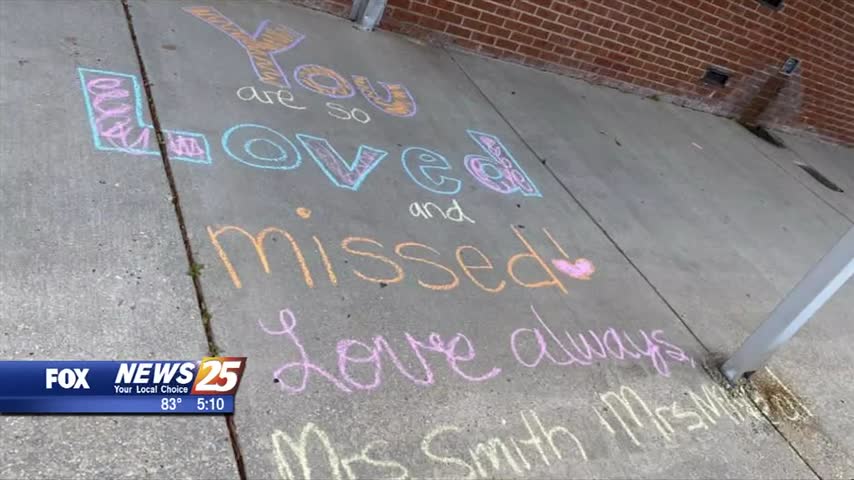 You
are so
Loved
and
missed!
Love always,
Mrs. Smith Mrs.
FOX NEWS 25
Your Local Choice
83° 5:10